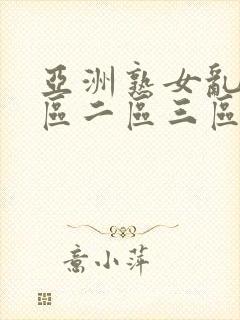 亞洲熟女亂
區二區三區
喬小萍